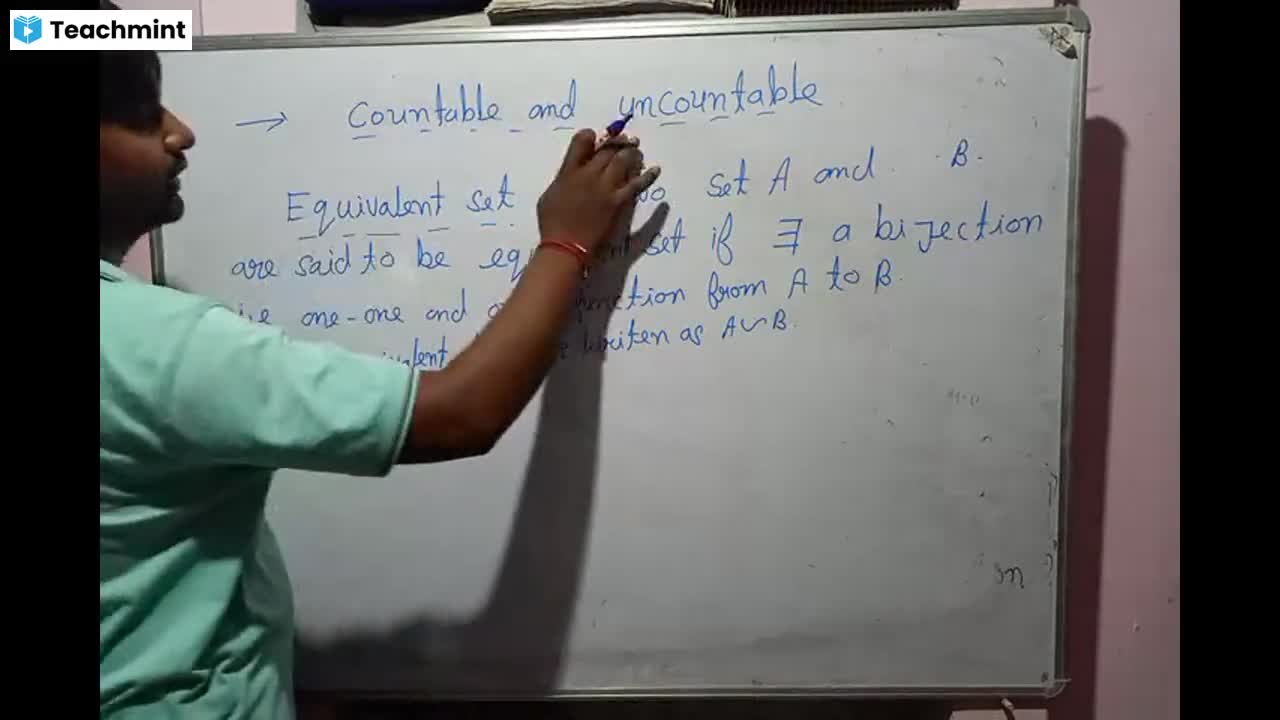 Teachmint
→ Countable and uncountable
Equivalent set set A and B.
are said to be set if ∃ a bijection
one-one and function from A to B.
writen as A~B.